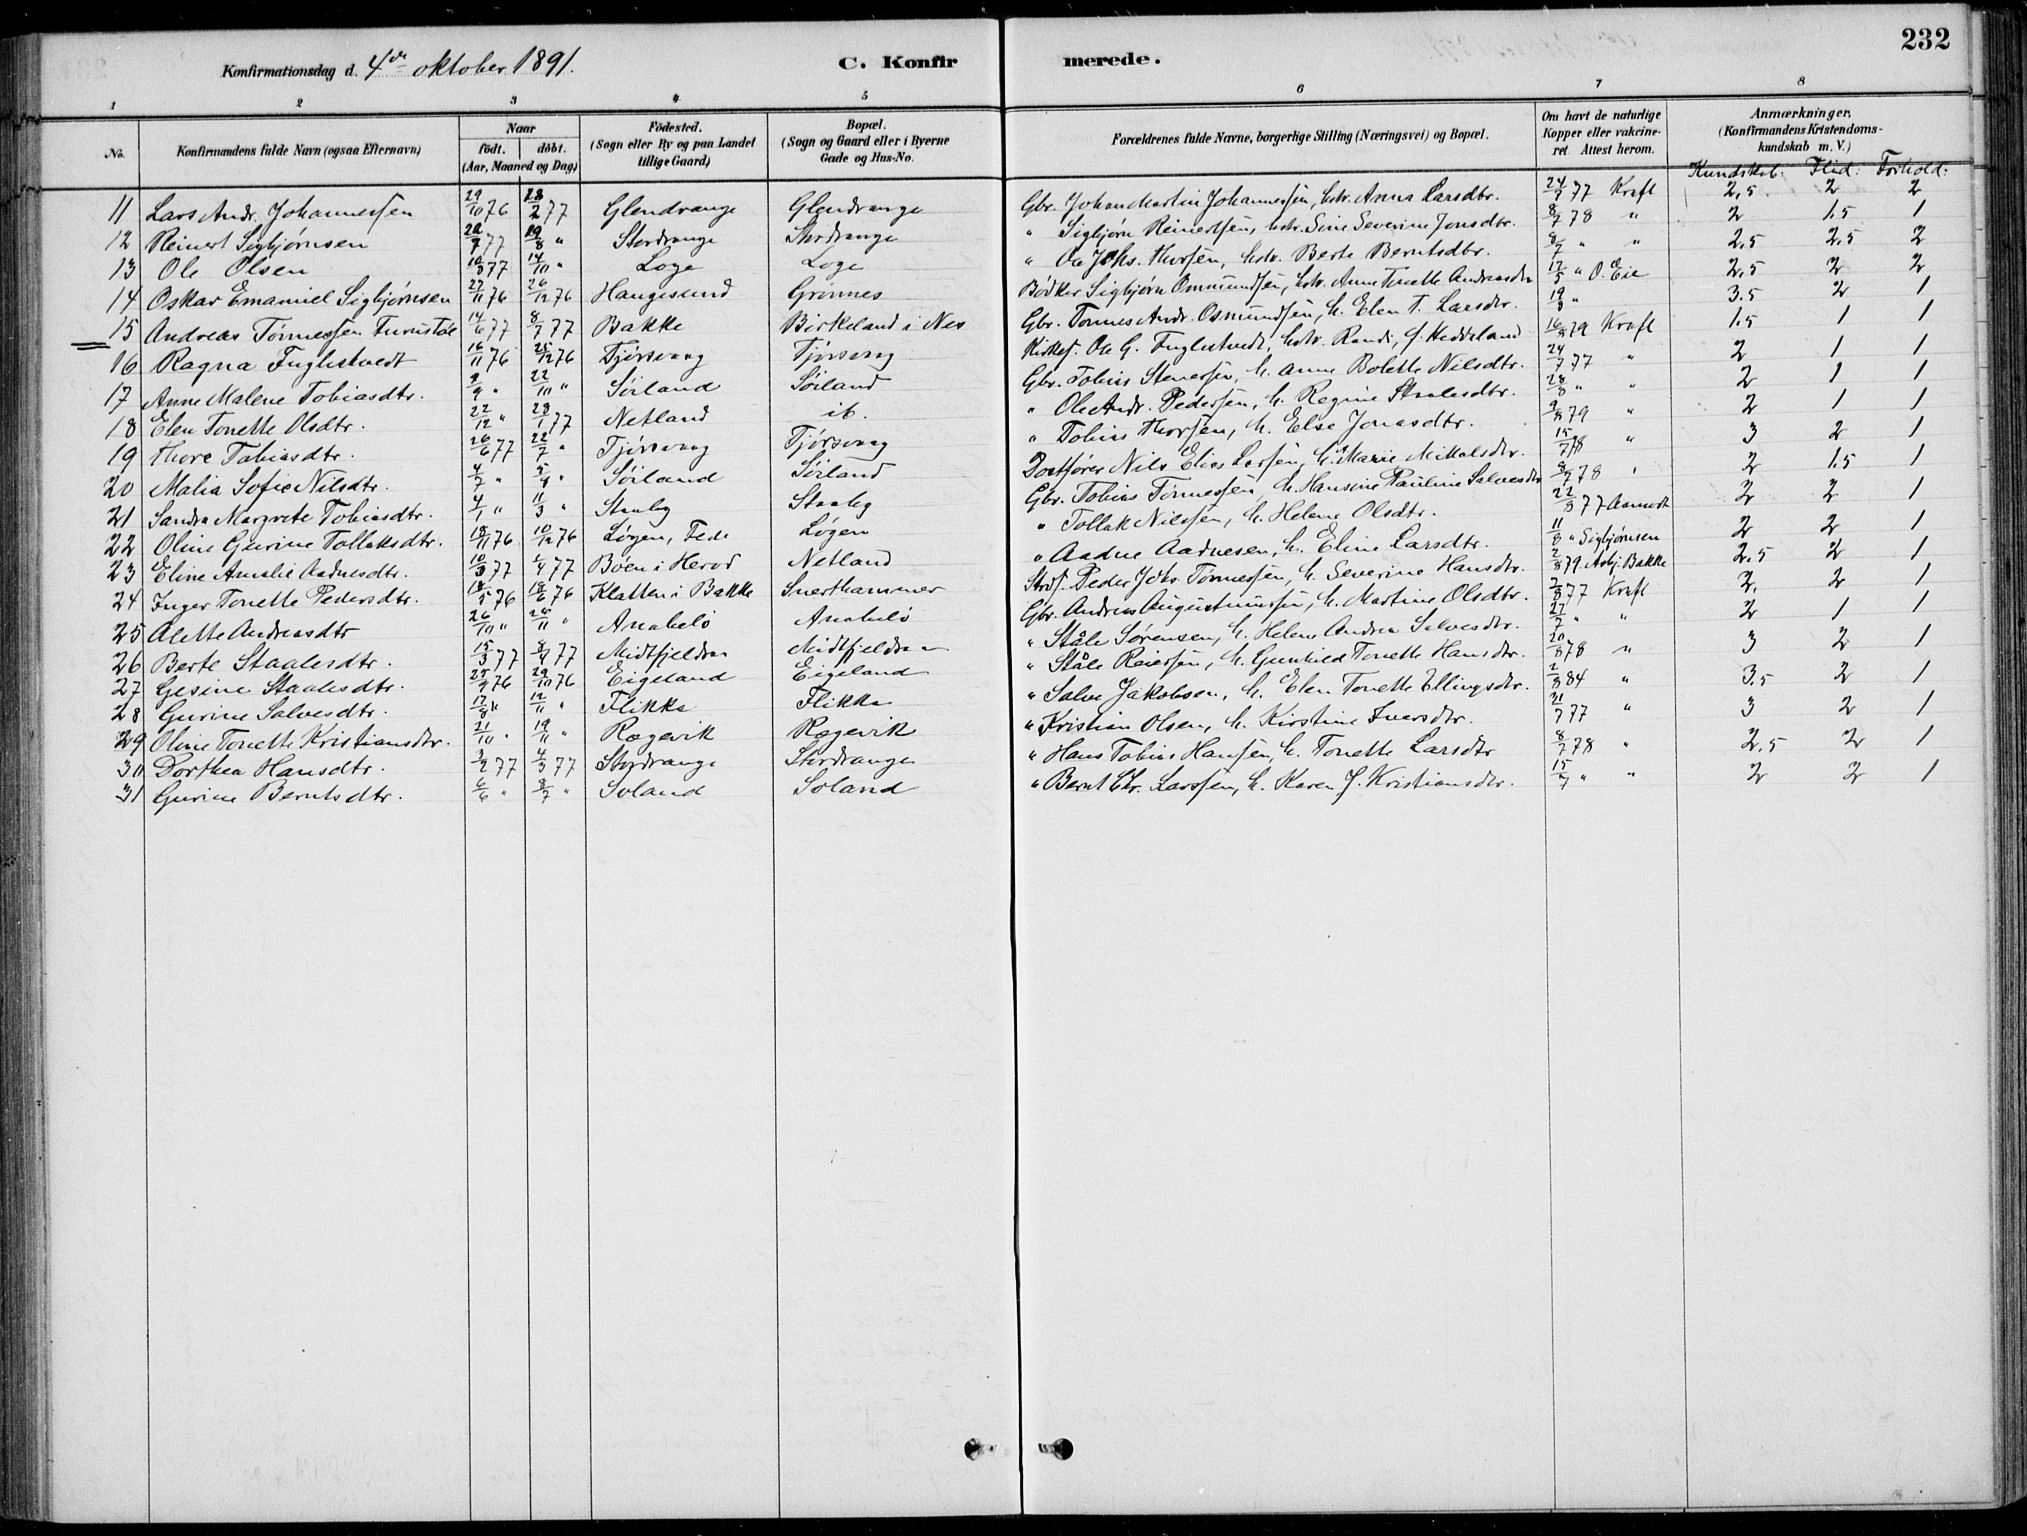 232
Konfirmationsdag d. 4de oktober 1891. C. Konfir merede.
1 2 3 4 5 6 7 8
No. Konfirmandens fulde Navn (ogsaa Efternavn) Naar født. døbt. (Aar, Maaned og Dag) Fødested. (Sogn eller By og paa Landet tillige Gaard) Bopæl. (Sogn og Gaard eller i Byerne Gade og Hus-No. Forældrenes fulde Navne, borgerlige Stilling (Næringsvei) og Bopæl. Om havt de naturlige Kopper eller vakcineret. Attest herom. Anmærkninger. (Konfirmandens Kristendomskundskab m. V.)
Kundskab: Flid: Forhold:
11 Lars Andr. Johannessen 29/10 76 28/2 77 Glendrange Glendrange Gbr. Johan Martin Johannessen, hstr. Anna Larsdtr. 24/7 77 Kraft 2,5 2 2
12 Reinert Sigbjørnsen 22/7 77 19/8 " Stordrange Stordrange " Sigbjørn Reinertsen, hstr. Sine Severine Jonsdtr. 8/7 78 " 2 1.5 1
13 Ole Olsen 10/9 77 14/10 " Loge Loge " Ole Johs. Thorsen, hstr. Berte Berntsdtr. 8/7 " " 2,5 2,5 2
14 Oskar Emanuel Sigbjørnsen 27/11 76 26/12 76 Haugesund Grønnes Bødker Sigbjørn Ommundsen, hstr. Anne Tonette Andreasdtr 17/5 " O. Eie 2,5 2 2
15 Andreas Tønnessen Furustøl 14/6 77 8/7 77 Bakke Birkeland i Nes Gbr. Tønnes Andr. Osmundsen, h. Elen T. Larsdtr. 19/9 " 3.5 2 1
16 Ragna Fuglestvedt 16/11 76 25/12 76 Tjørsvaag Tjørsvaag Kirkes. Ole G. Fuglestvedt, hstr. Randi, f. Heddeland 16/8 79 Kraft 1.5 1 1
17 Anne Malene Tobiasdtr. 9/9 " 22/10 " Søiland Søiland Gbr. Tobias Stenersen, h. Anne Bolette Nilsdtr. 24/7 77 " 2 1 1
18 Elen Tonette Olsdtr. 22/12 " 28/1 77 Netland ib. " Ole Andr. Pedersen, h. Regine Staalesdtr. 28/8 " " 2 1 1
19 Thore Tobiasdtr. 26/6 77 22/7 " Tjørsvaag Tjørsvaag " Tobias Thorsen, h. Else Jonasdtr. 9/8 79 " 2 1 1
20 Malia Sofie Nilsdtr. 4/7 " 5/9 " Søiland Søiland Postfører Nils Elias Larsen, h. Marie Mikalsdtr. 15/7 78 " 3 2 1
21 Sandra Margrete Tobiasdtr. 4/1 " 11/3 " Staaby Staaby Gbr. Tobias Tønnessen, h. Hansine Pauline Salvesdtr 8/7 78 " 2 1.5 1
22 Oline Gurine Tollaksdtr. 18/11 76 10/12 76 Løgen, Fede Løgen " Tollak Nilssen, h. Helene Olsdtr. 22/8 77 Aamodt 2 2 1
23 Eline Amalie Aadnesdtr. 10/3 77 1/4 77 Bøen i Herad Netland " Aadne Aadnesen, h. Eline Larsdtr. 11/8 " Sigbjørnsen 2 2 1
24 Inger Tonette Pedersdtr. 18/5 76 18/6 76 Klatten i Bakke Snerthammer Strdf. Peder Johs. Tønnessen, h. Severine Hansdtr. 2/8 79 Asbj. Bakke 2,5 2 1
25 Alette Andreasdtr 26/10 " 26/11 " Anabelø Anabelø Gbr. Andreas Augustinussen, h. Martine Olsdtr. 2/8 77 Kraft 2, 2 1
26 Berte Staalesdtr. 15/3 77 8/4 77 Midtfjeldsaa Midtfjeldsaa " Ståle Sørensen, h. Helene Andrea Salvesdtr. 27/7 " " 2 1 1
27 Gesine Staalesdtr. 25/9 76 29/10 76 Eigeland Eigeland " Ståle Reiersen, h. Gunhild Tonette Hansdtr. 20/8 78 " 3 2 1
28 Gurine Salvesdtr. 17/8 " 12/11 " Flikke Flikke " Salve Jakobsen, h. Elen Tonette Ellingsdtr. 2/8 84 " 3,5 2 1
29 Oline Tonette Kristiansdtr. 21/10 " 19/11 " Rægevik Rægevik " Kristian Olsen, h. Kirstine Iversdtr. 21/7 77 " 3 2 1
30 Dorthea Hansdtr. 3/2 77 4/3 77 Stordrange Stordrange " Hans Tobias Hansen, h. Tonette Larsdtr 8/7 78 " 2,5 2 1
31 Gurine Berntsdtr. 6/6 " 8/7 " Soland Soland " Bernt Chr. Larssen, h. Karen J. Kristiansdtr. 15/7 " " 2 2 1